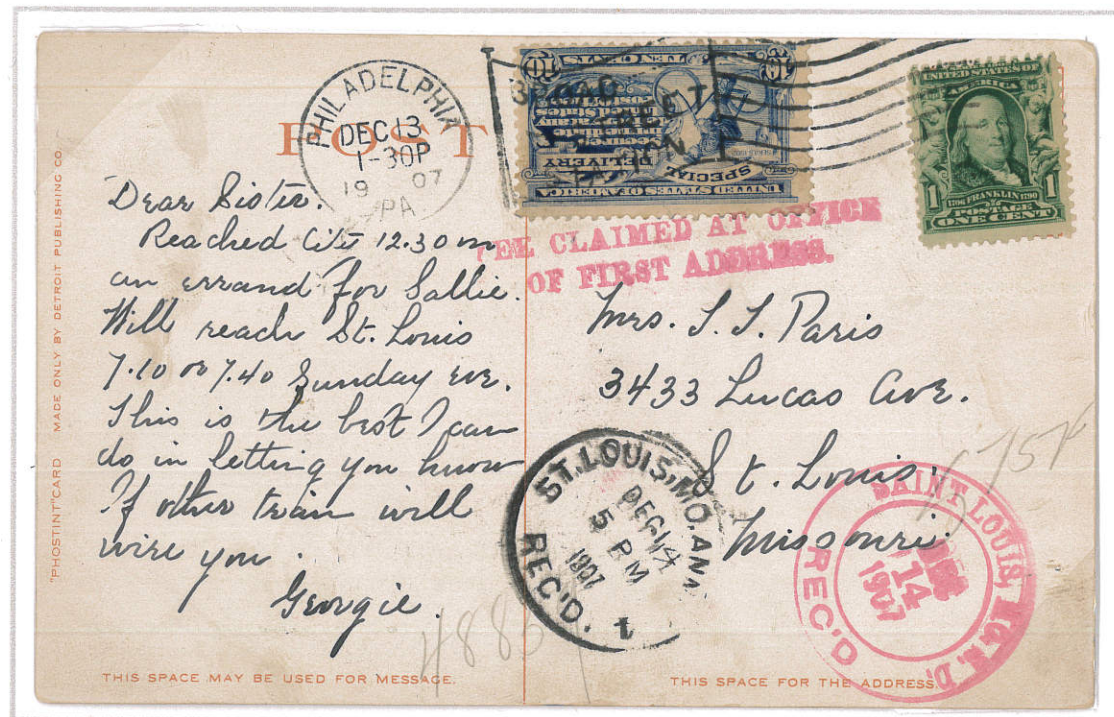 "PHOSTINT" CARD MADE ONLY BY DETROIT PUBLISHING CO.
POST
PHILADELPHIA
DEC 13
1-30P
19 07
PA.
TEN CENTS
10 10
SPECIAL
DELIVERY
UNITED STATES OF AMERICA
UNITED STATES OF
AMERICA
1 1
1706 FRANKLIN 1790
POSTAGE
ONE CENT
FEE CLAIMED AT OFFICE
OF FIRST ADDRESS.
Dear Sister.
Reached City 12.30 on
an errand for Sallie.
Will reach St. Louis
7.10 or 7.40 Sunday eve.
This is the best I can
do in letting you know
If other train will
wire you.
Georgie.
Mrs. J. J. Paris
3433 Lucas Ave.
St. Louis.
Missouri.
ST. LOUIS, MO. ANN
DEC 14
5 PM
1907
REC'D.
1
SAINT LOUIS, MO.
14
1907
REC'D
4883
THIS SPACE MAY BE USED FOR MESSAGE.
THIS SPACE FOR THE ADDRESS.